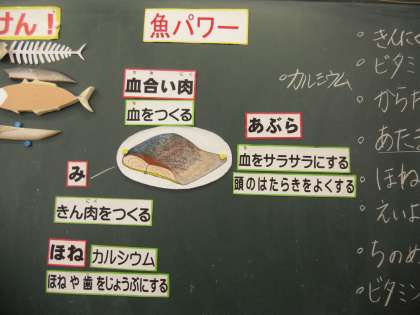 けん！
魚パワー
血合い肉
血をつくる
あぶら
血をサラサラにする
頭のはたらきをよくする
み
きん肉をつくる
ほね
カルシウム
ほねや歯をじょうぶにする
・カルシウム
・きんにく
・ビタミ
・からだ
・あたま
・ほね
・えいよ
・ちのめ
・ビタミン